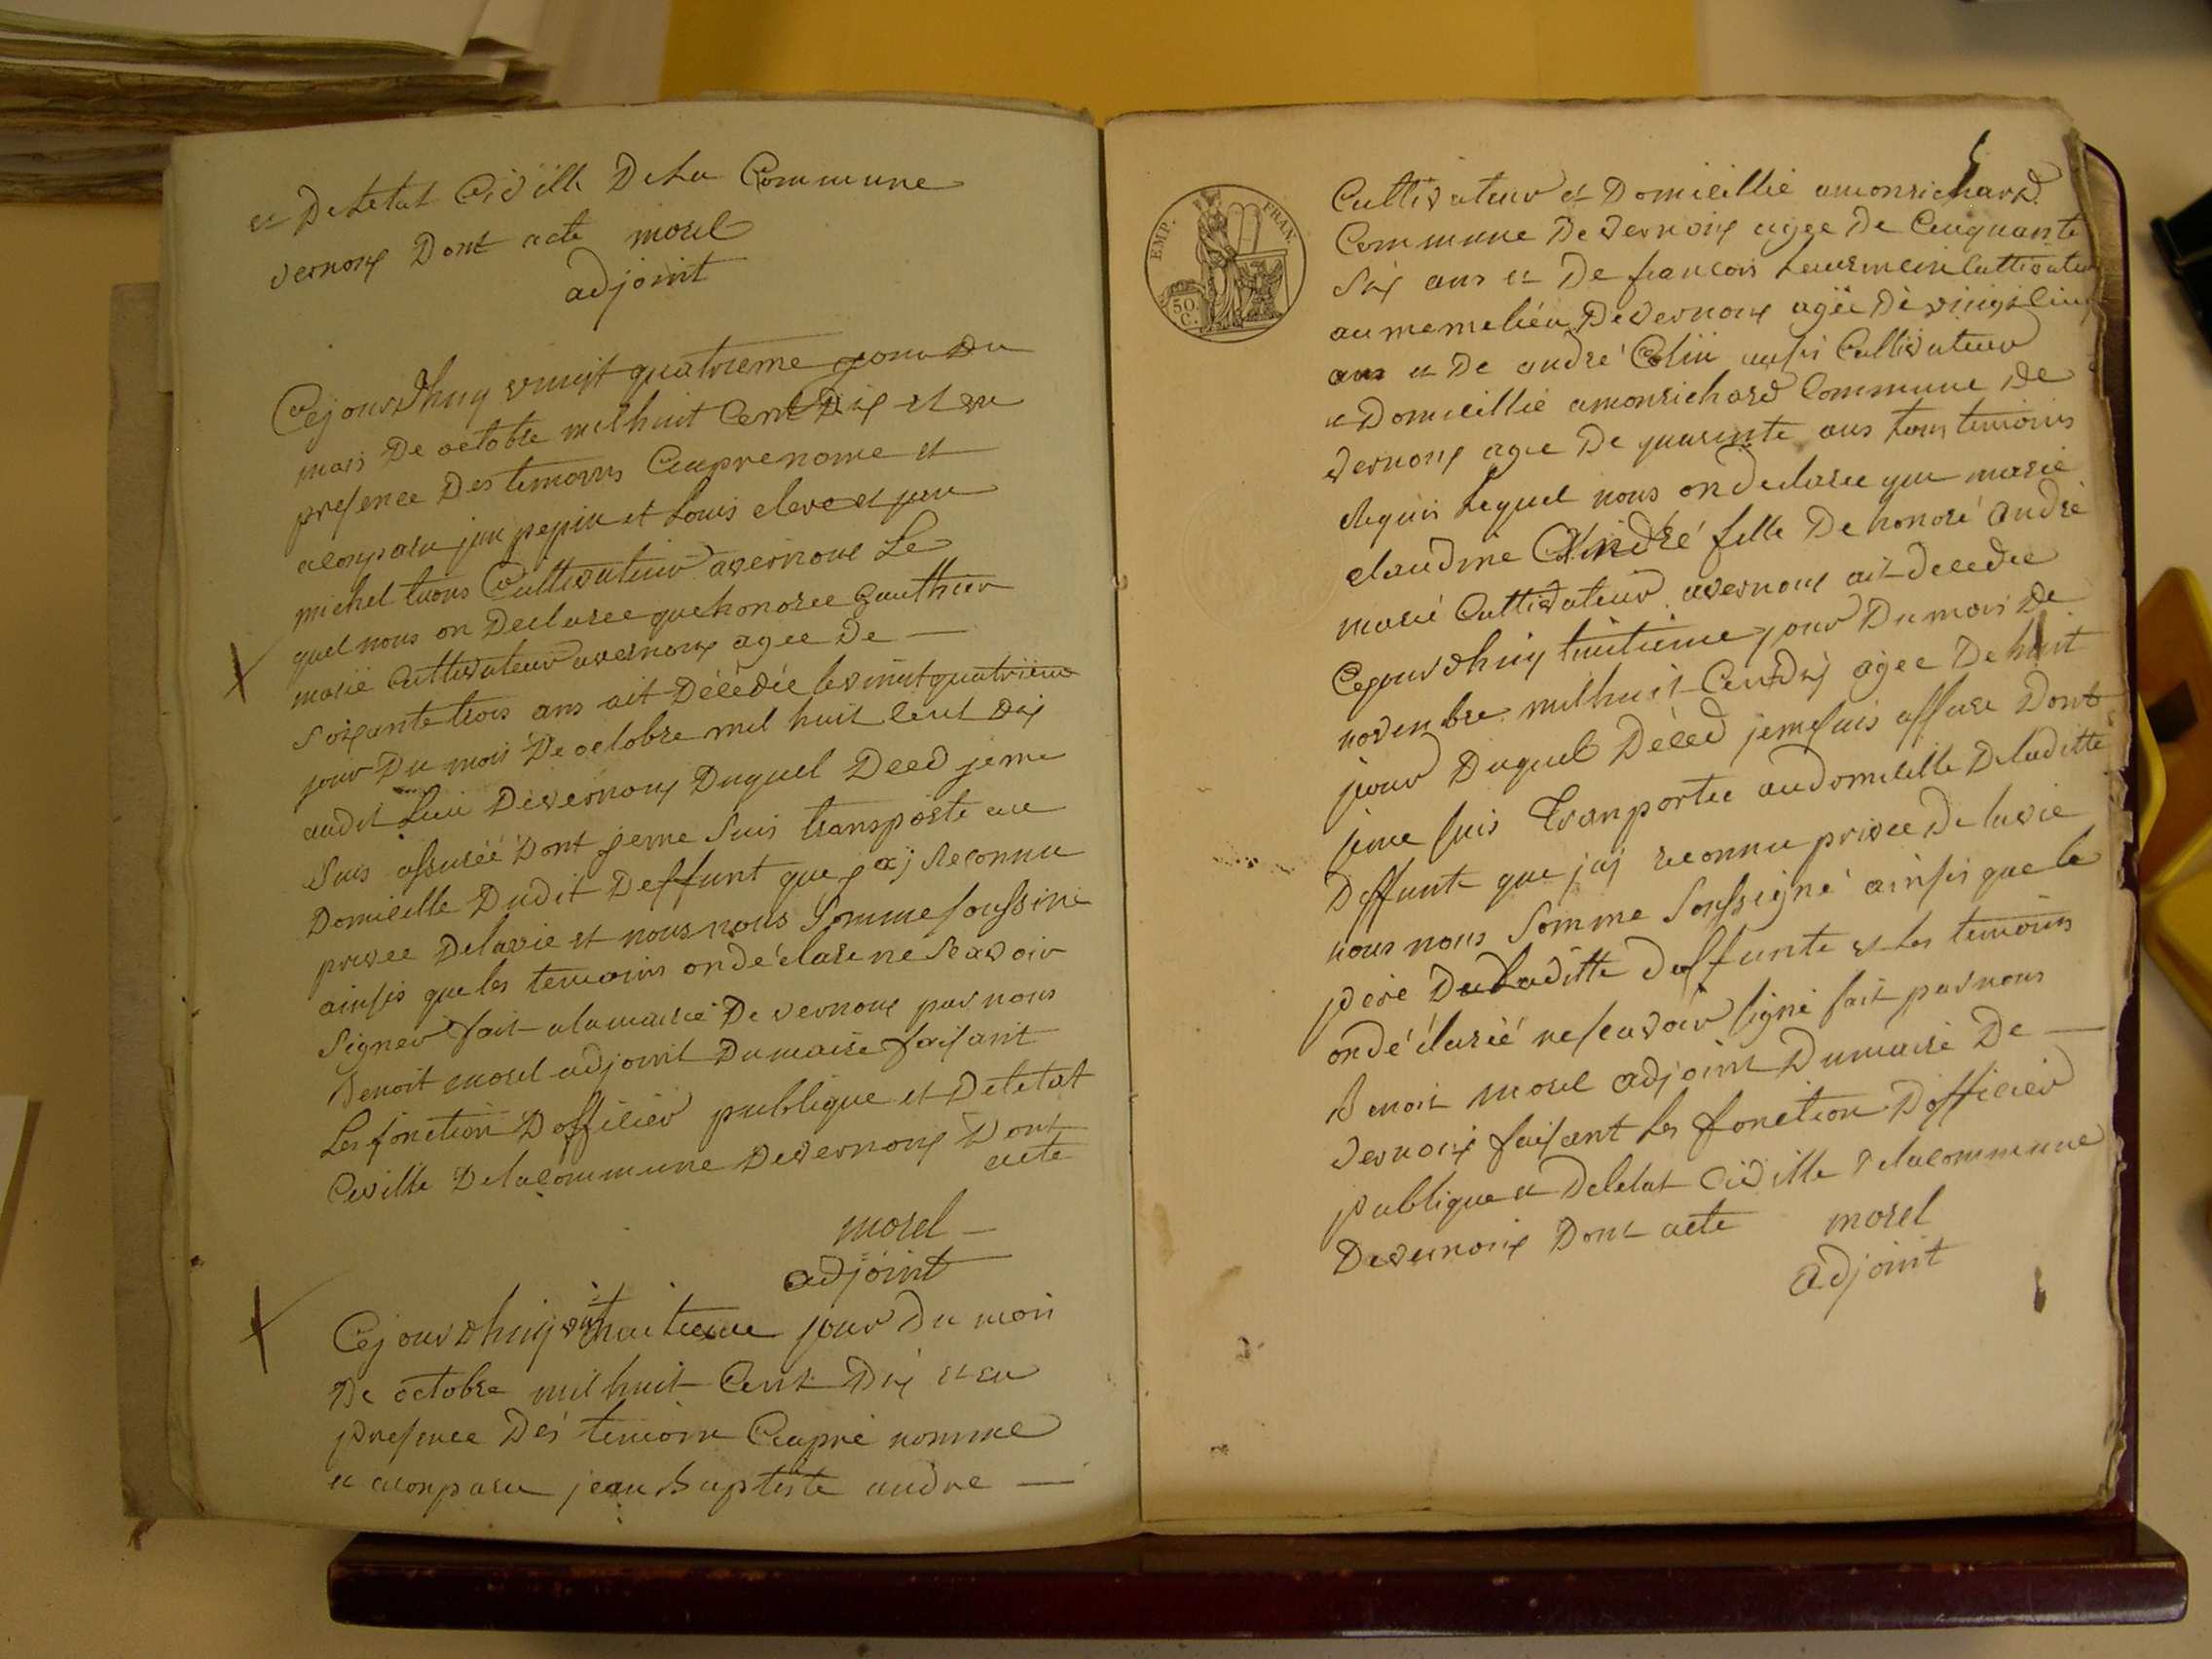 et De Letat Civille De La Commune
vernoux Dont acte morel
adjoint
Cejourdhuy vingt quatrieme jour du
mois De octobre mil huit Cent Dix et en
presence Des temoins Cyaprenome et
aconparu jean pepin et Louis eleve et jean
michel tuons Cultivateur avernoux Le
quel nous on Declaree que honoree Gauthier
marie Cultivateur avernoux agee De —
soixante trois ans ait Décédée le vint quatrième
jour Du mois De octobre mil huit Cent Dix
audit Lieu De vernoux Duquel Deed jeme
Suis assurée Dont jeme Suis transporte au
Domicille Dudit Deffunt que jaÿ Reconnu
privee Delavie et nous nous Somme soussine
ainsis que les temoins on déclare ne Scavoir
Signer fait alamairie De vernoux par nous
Benoit morel adjoint Dumaire faisant
Les fonction Dofficier publique et Deletat
Civille Delacommune Devernoux Dont
acte
morel —
adjoint
Cejourdhuy vint huitieme jour Du mois
De octobre mil huit Cent Dix et en
presence Des temoin Cyapré nomme
et aconparu jean Baptiste andre —
5
EMP. FRAN.
50 C.
Cultivateur et Domicillié amonrichard
Commune De vernoux agee De Cinquante
Six ans et De francois Cultivateur
au meme lieu De vernoux agée De vingt Cinq
ans et De andré Colin ausi Cultivateur
et Domicillié amonrichard Commune De
vernoux agee De quarente ans tous temoins
Requis Lequel nous on declaree que marie
claudine André fille De honoré André
marié Cultivateur avernoux ait decedee
Cejourdhuy huitieme jour Du mois De
novenbre mil huit Cent Dix agee De huit
jour Duquel Déced jemesuis assure Dont
jeme suis Transportee audomicille Deladitte
Deffunte que jaÿ reconnu privee De lavie
nous nous Somme Soussigné ainsis que le
père De Laditte deffunte et les temoins
on déclarée ne scavoir signé fait par nous
Benoit morel adjoint Dumaire De —
vernoux faisant les fonction Dofficier
publique et Deletat Civille Delacommune
Devernoux Dont acte morel
adjoint